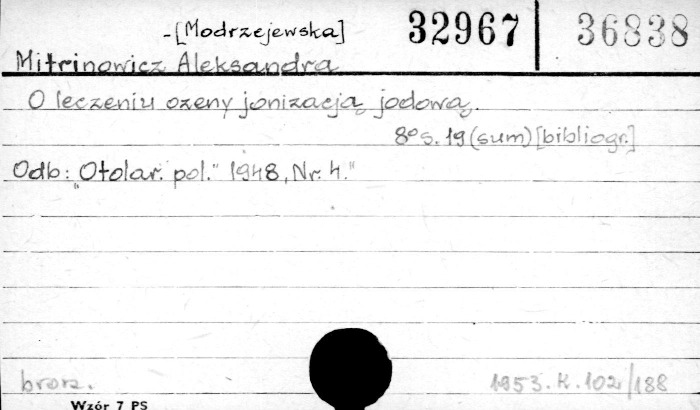 -[Modrzejewska] 32967 36838
Mitrinowicz Aleksandra
O leczeniu ozeny jonizacją jodową.
8° s. 19 (sum) [bibliogr.]
Odb: "Otolar. pol." 1948, Nr. 4."
brosz. 1953. K. 102/188
Wzór 7 PS